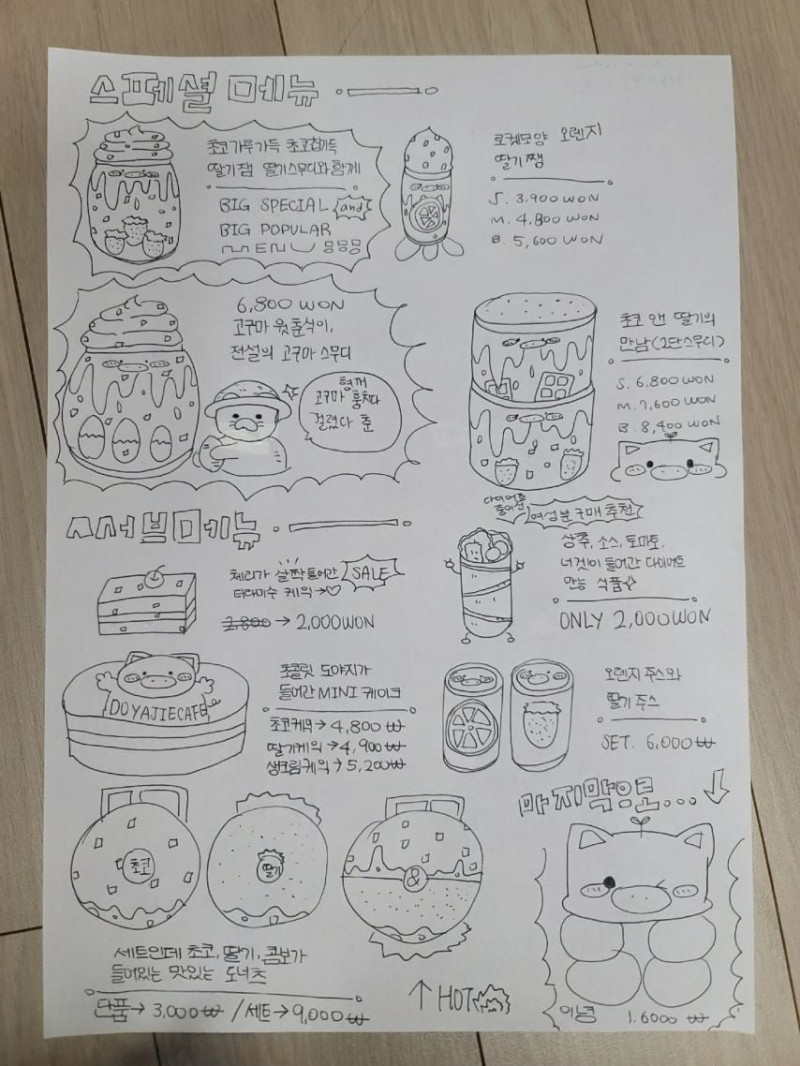 스페셜 메뉴
초코가루가득 초코칩가득
딸기잼 딸기스무디와 함께
BIG SPECIAL and
BIG POPULAR
MENU 뭉뭉뭉
로켓모양 오렌지
딸기쨈
S. 3.900 WON
M. 4.800 WON
B. 5,600 WON
6,800 WON
고구마 원춘식이,
전설의 고구마 스무디
고구마 훔치다
걸렸다 춘
초코 앤 딸기의
만남(2단스무디)
S. 6,800 WON
M. 7,600 WON
B. 8,400 WON
서브메뉴
체리가 살짝 들어간 SALE
티라미수 케잌→♡
2,800 → 2,000WON
다이어트
여성분 구매 추천
상추, 소스, 토마토,
너겟이 들어간 다이어트
만능 식품☆
ONLY 2,000WON
DOYAJIECAFE
초콜릿 도야지가
들어간 MINI 케이크
초코케잌→4,800₩
딸기케잌→4,900₩
생크림케잌→5,200₩
오렌지 주스와
딸기 주스
SET. 6,000₩
마지막으로...↓
초코
딸기
&
세트인데 초코, 딸기, 콤보가
들어있는 맛있는 도너츠
단품→ 3,000₩ /세트→9,000₩
↑HOT
인형 1.6000 ₩